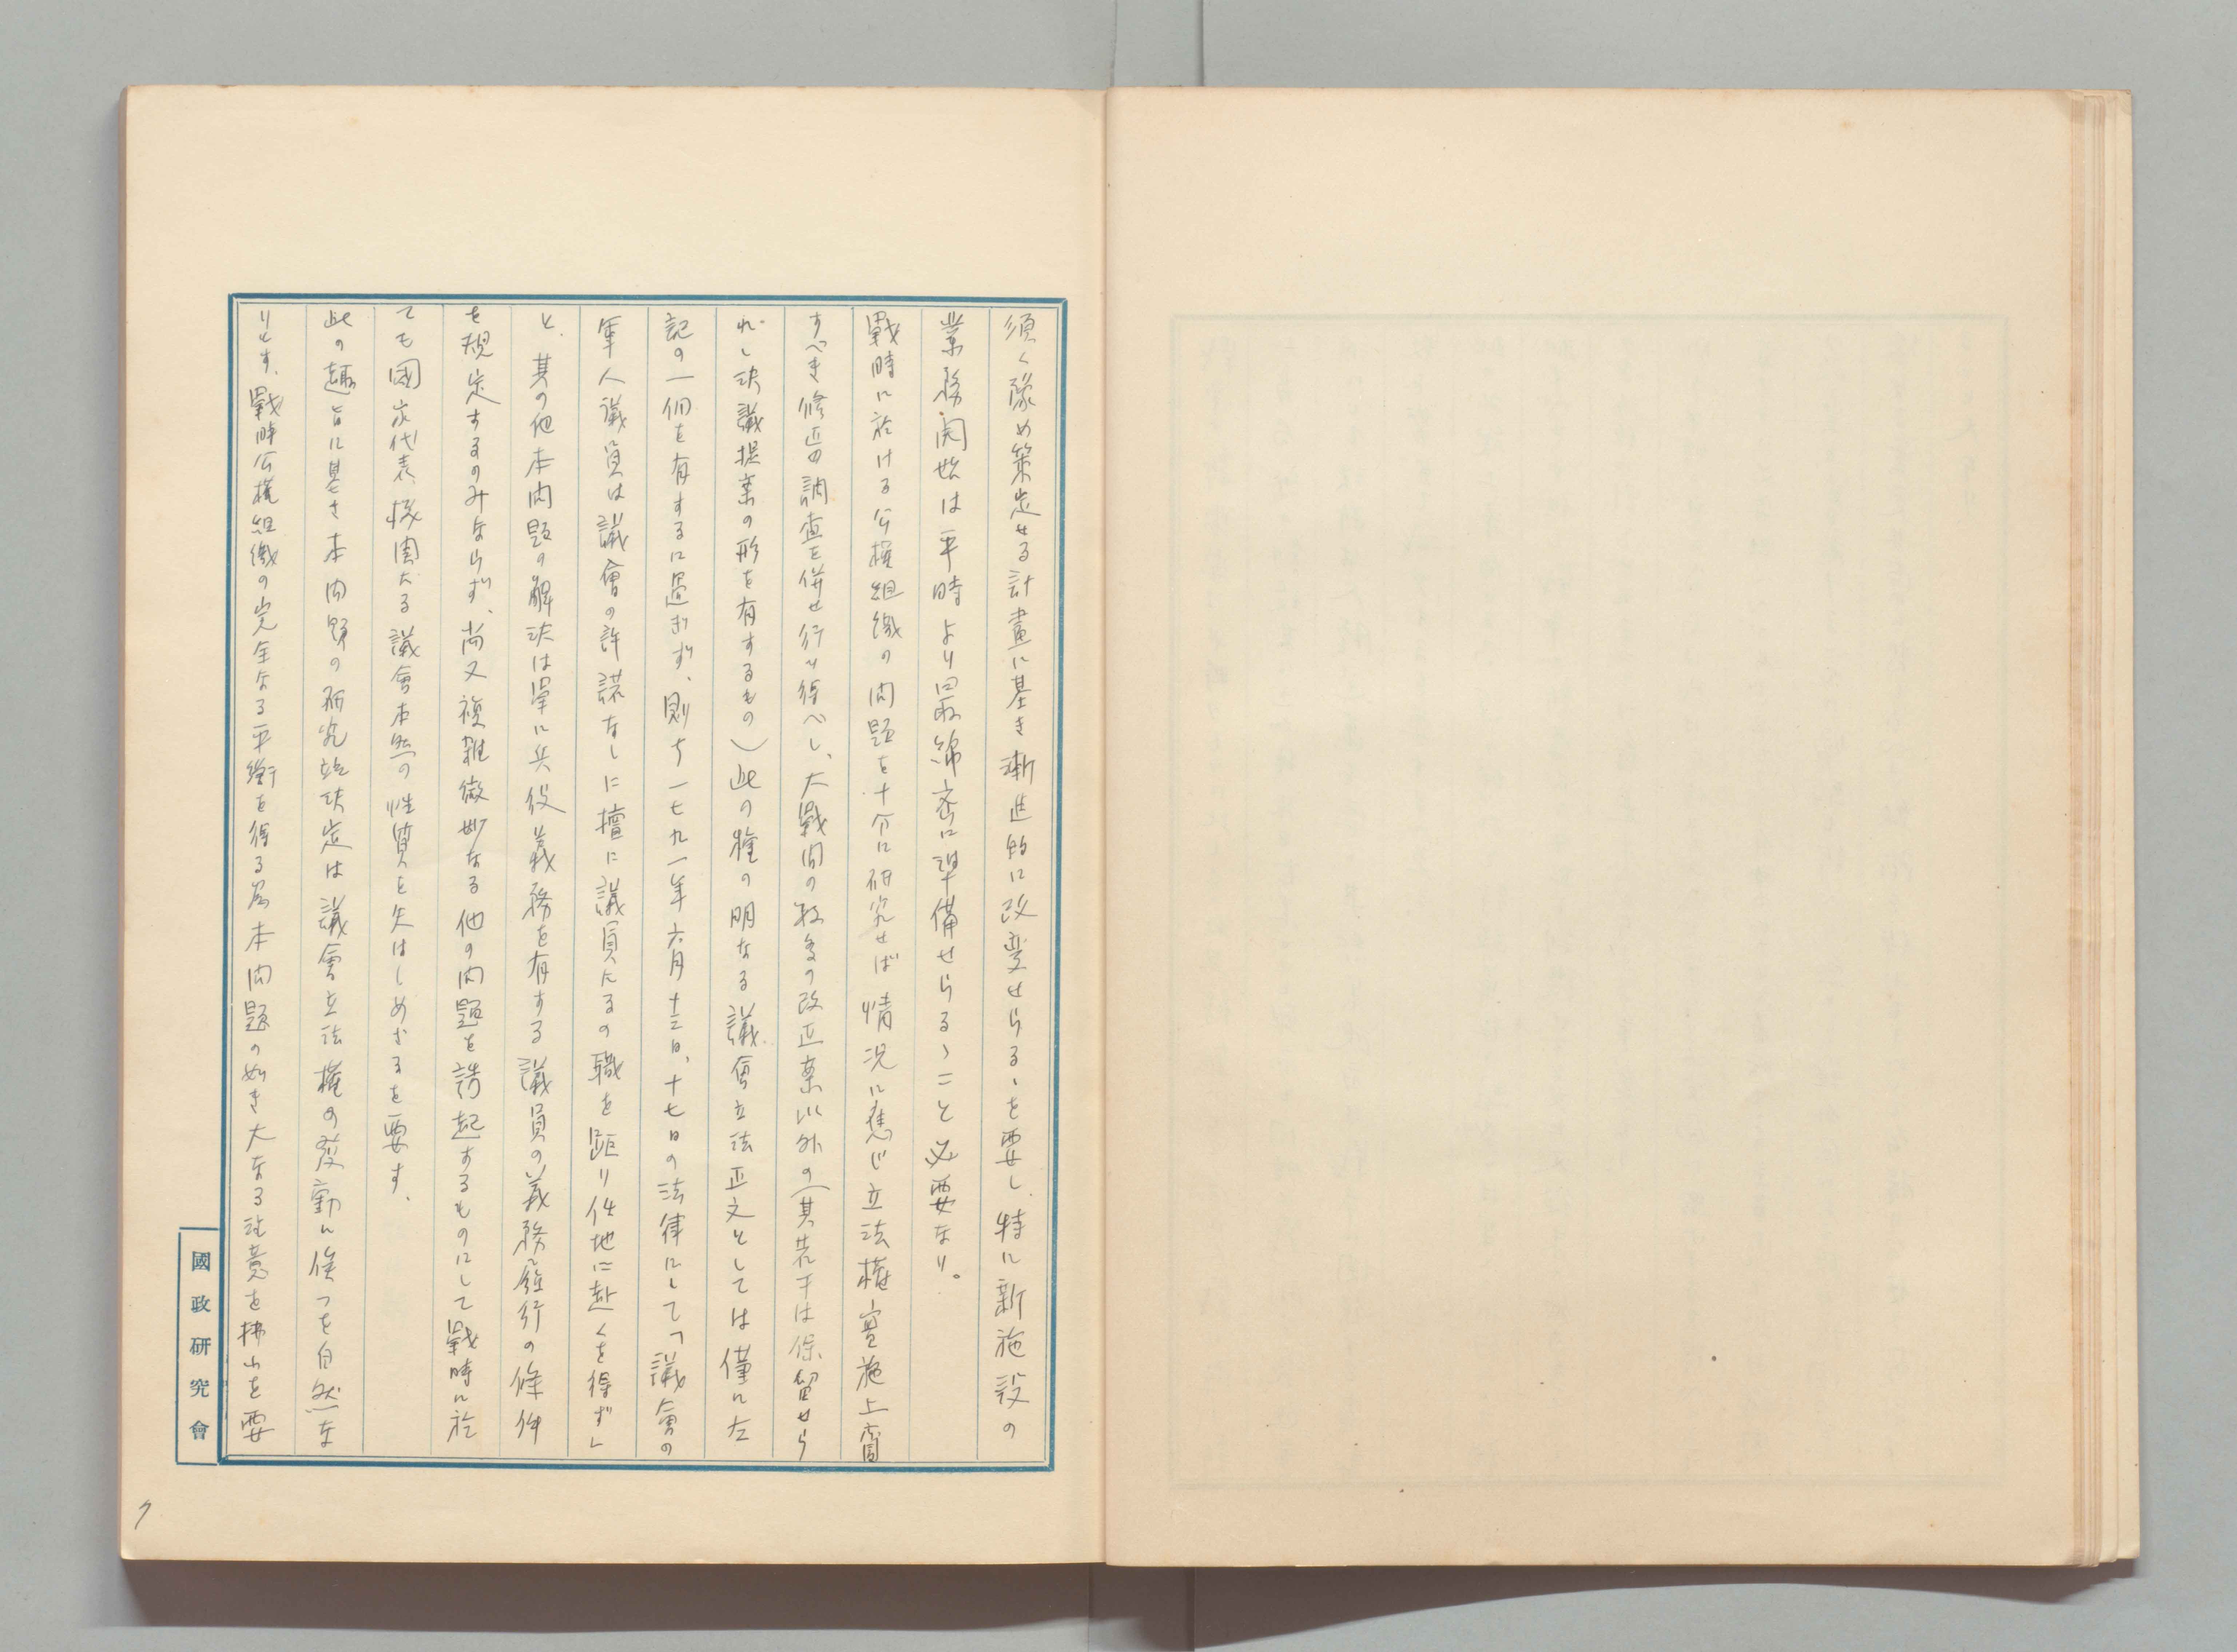 須く豫め策定せる計畫に基き漸進的に改變せらるゝを要し、特に新施設の
業務開始は平時より最綿密に準備せらるゝこと必要なり。
戰時に於ける公權組織の問題を十分に研究せば情況に應じ立法權實施上齎
すべき修正の調査を併せ行り得べし、大戰間の数多の改正案以外の(其若干は保留せら
れし決議提案の形を有するもの)此の種の明なる議會立法正文としては僅に左
記の一個を有するに過ぎず、則ち一七九一年六月十三日、十七日の法律にして「議會の
軍人議員は議會の許諾なしに擅に議員たるの職を距り任地に赴くを得ず」
と、其の他本問題の解決は單に兵役義務を有する議員の義務履行の條件
を規定するのみならず、尚又複雜微妙なる他の問題を誘起するものにして戰時に於
ても國家代表機関たる議會本然の性質を失はしめざるを要す、
此の趣旨に基き本問題の研究竝決定は議會立法權の發動に俟つを自然な
りとす、戰時公權組織の完全なる平衡を得る為本問題の如き大なる注意を拂ふを要
國政研究會
7